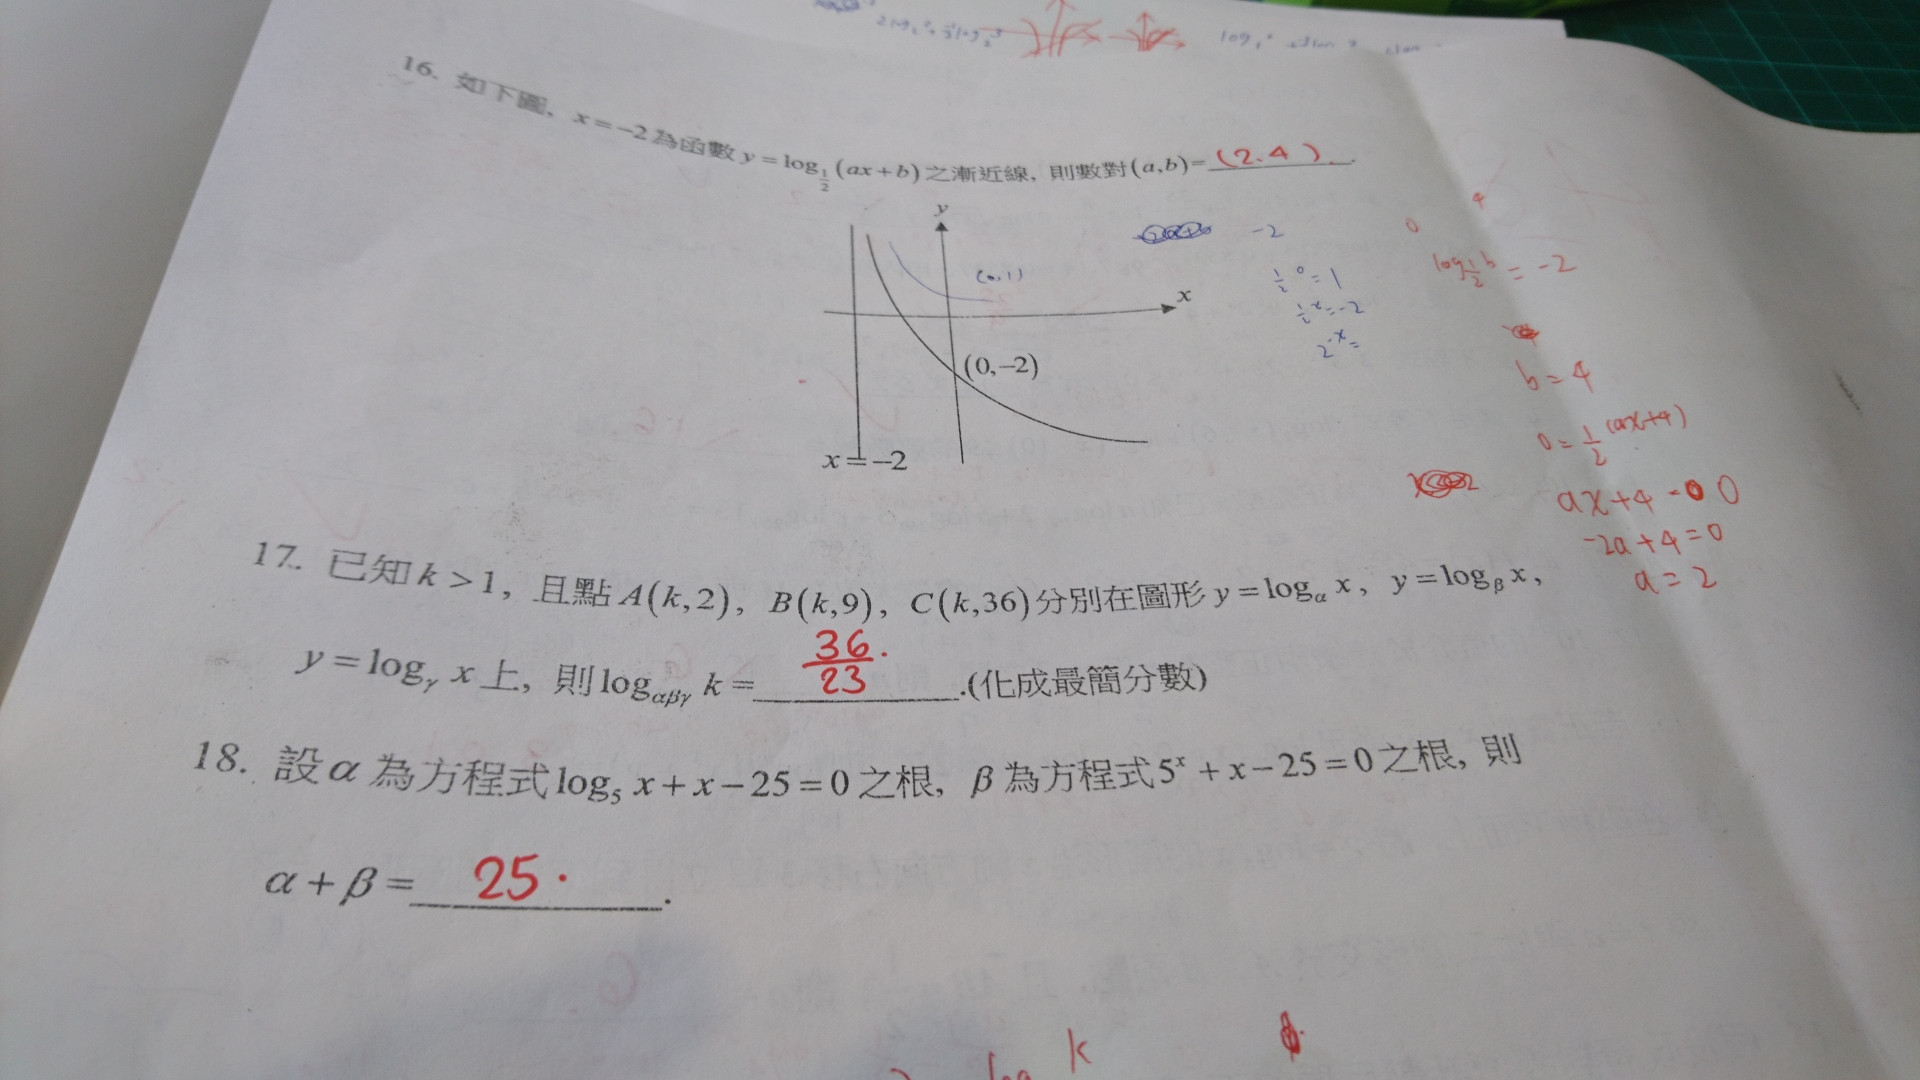 16. 如下圖, x=-2為函數 y = log_{1/2} (ax+b) 之漸近線, 則數對(a,b)= (2.4).
y
(0,1)
x
(0,-2)
x=-2
-2
1/2^0 = 1
1/2^x = -2
2^{-x} =
4
0
log_{1/2} b = -2
b = 4
0 = 1/2^{(ax+4)}
ax+4 = 0
-2a+4=0
a = 2
17. 已知 k > 1, 且點 A(k,2), B(k,9), C(k,36) 分別在圖形 y = log_α x, y = log_β x,
y = log_γ x 上, 則 log_{αβγ} k = 36/23 .(化成最簡分數)
18. 設 α 為方程式 log_5 x + x - 25 = 0 之根, β 為方程式 5^x + x - 25 = 0 之根, 則
α + β = 25 .
log k